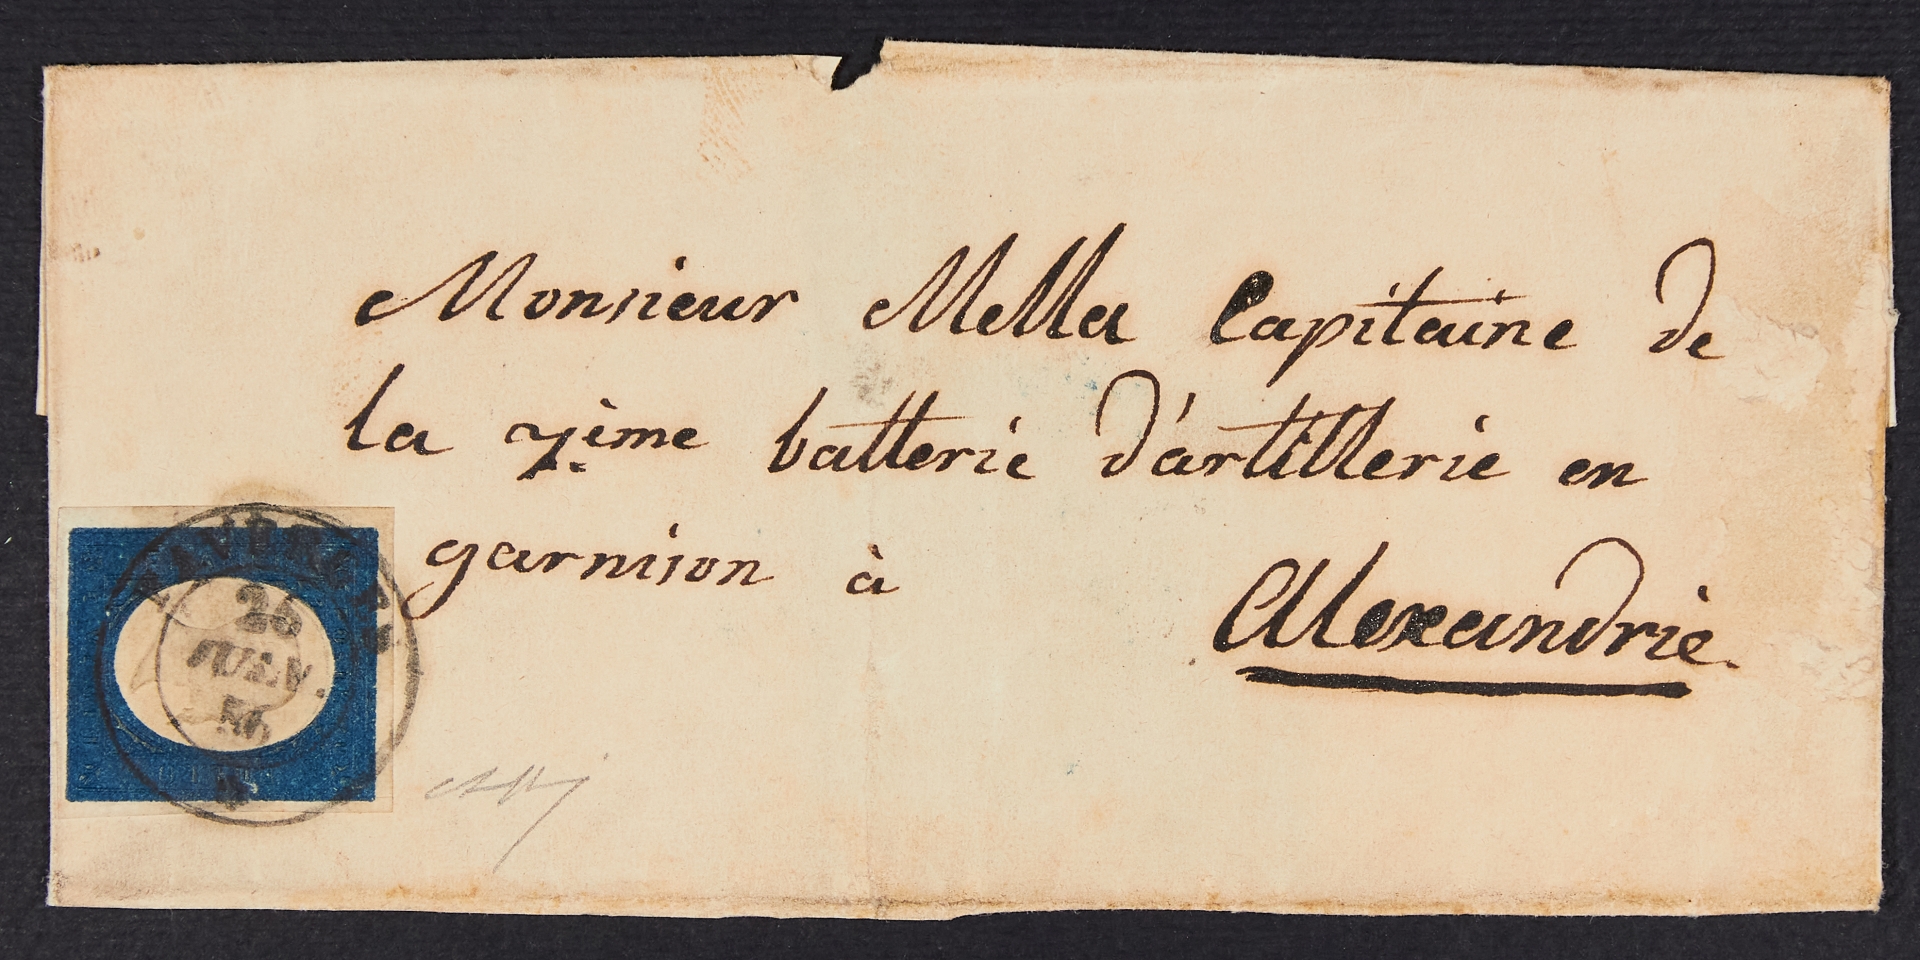 Monsieur Mella Capitaine de
la 7ième batterie d'artillerie en
garnison à
Alexandrie.
26
56